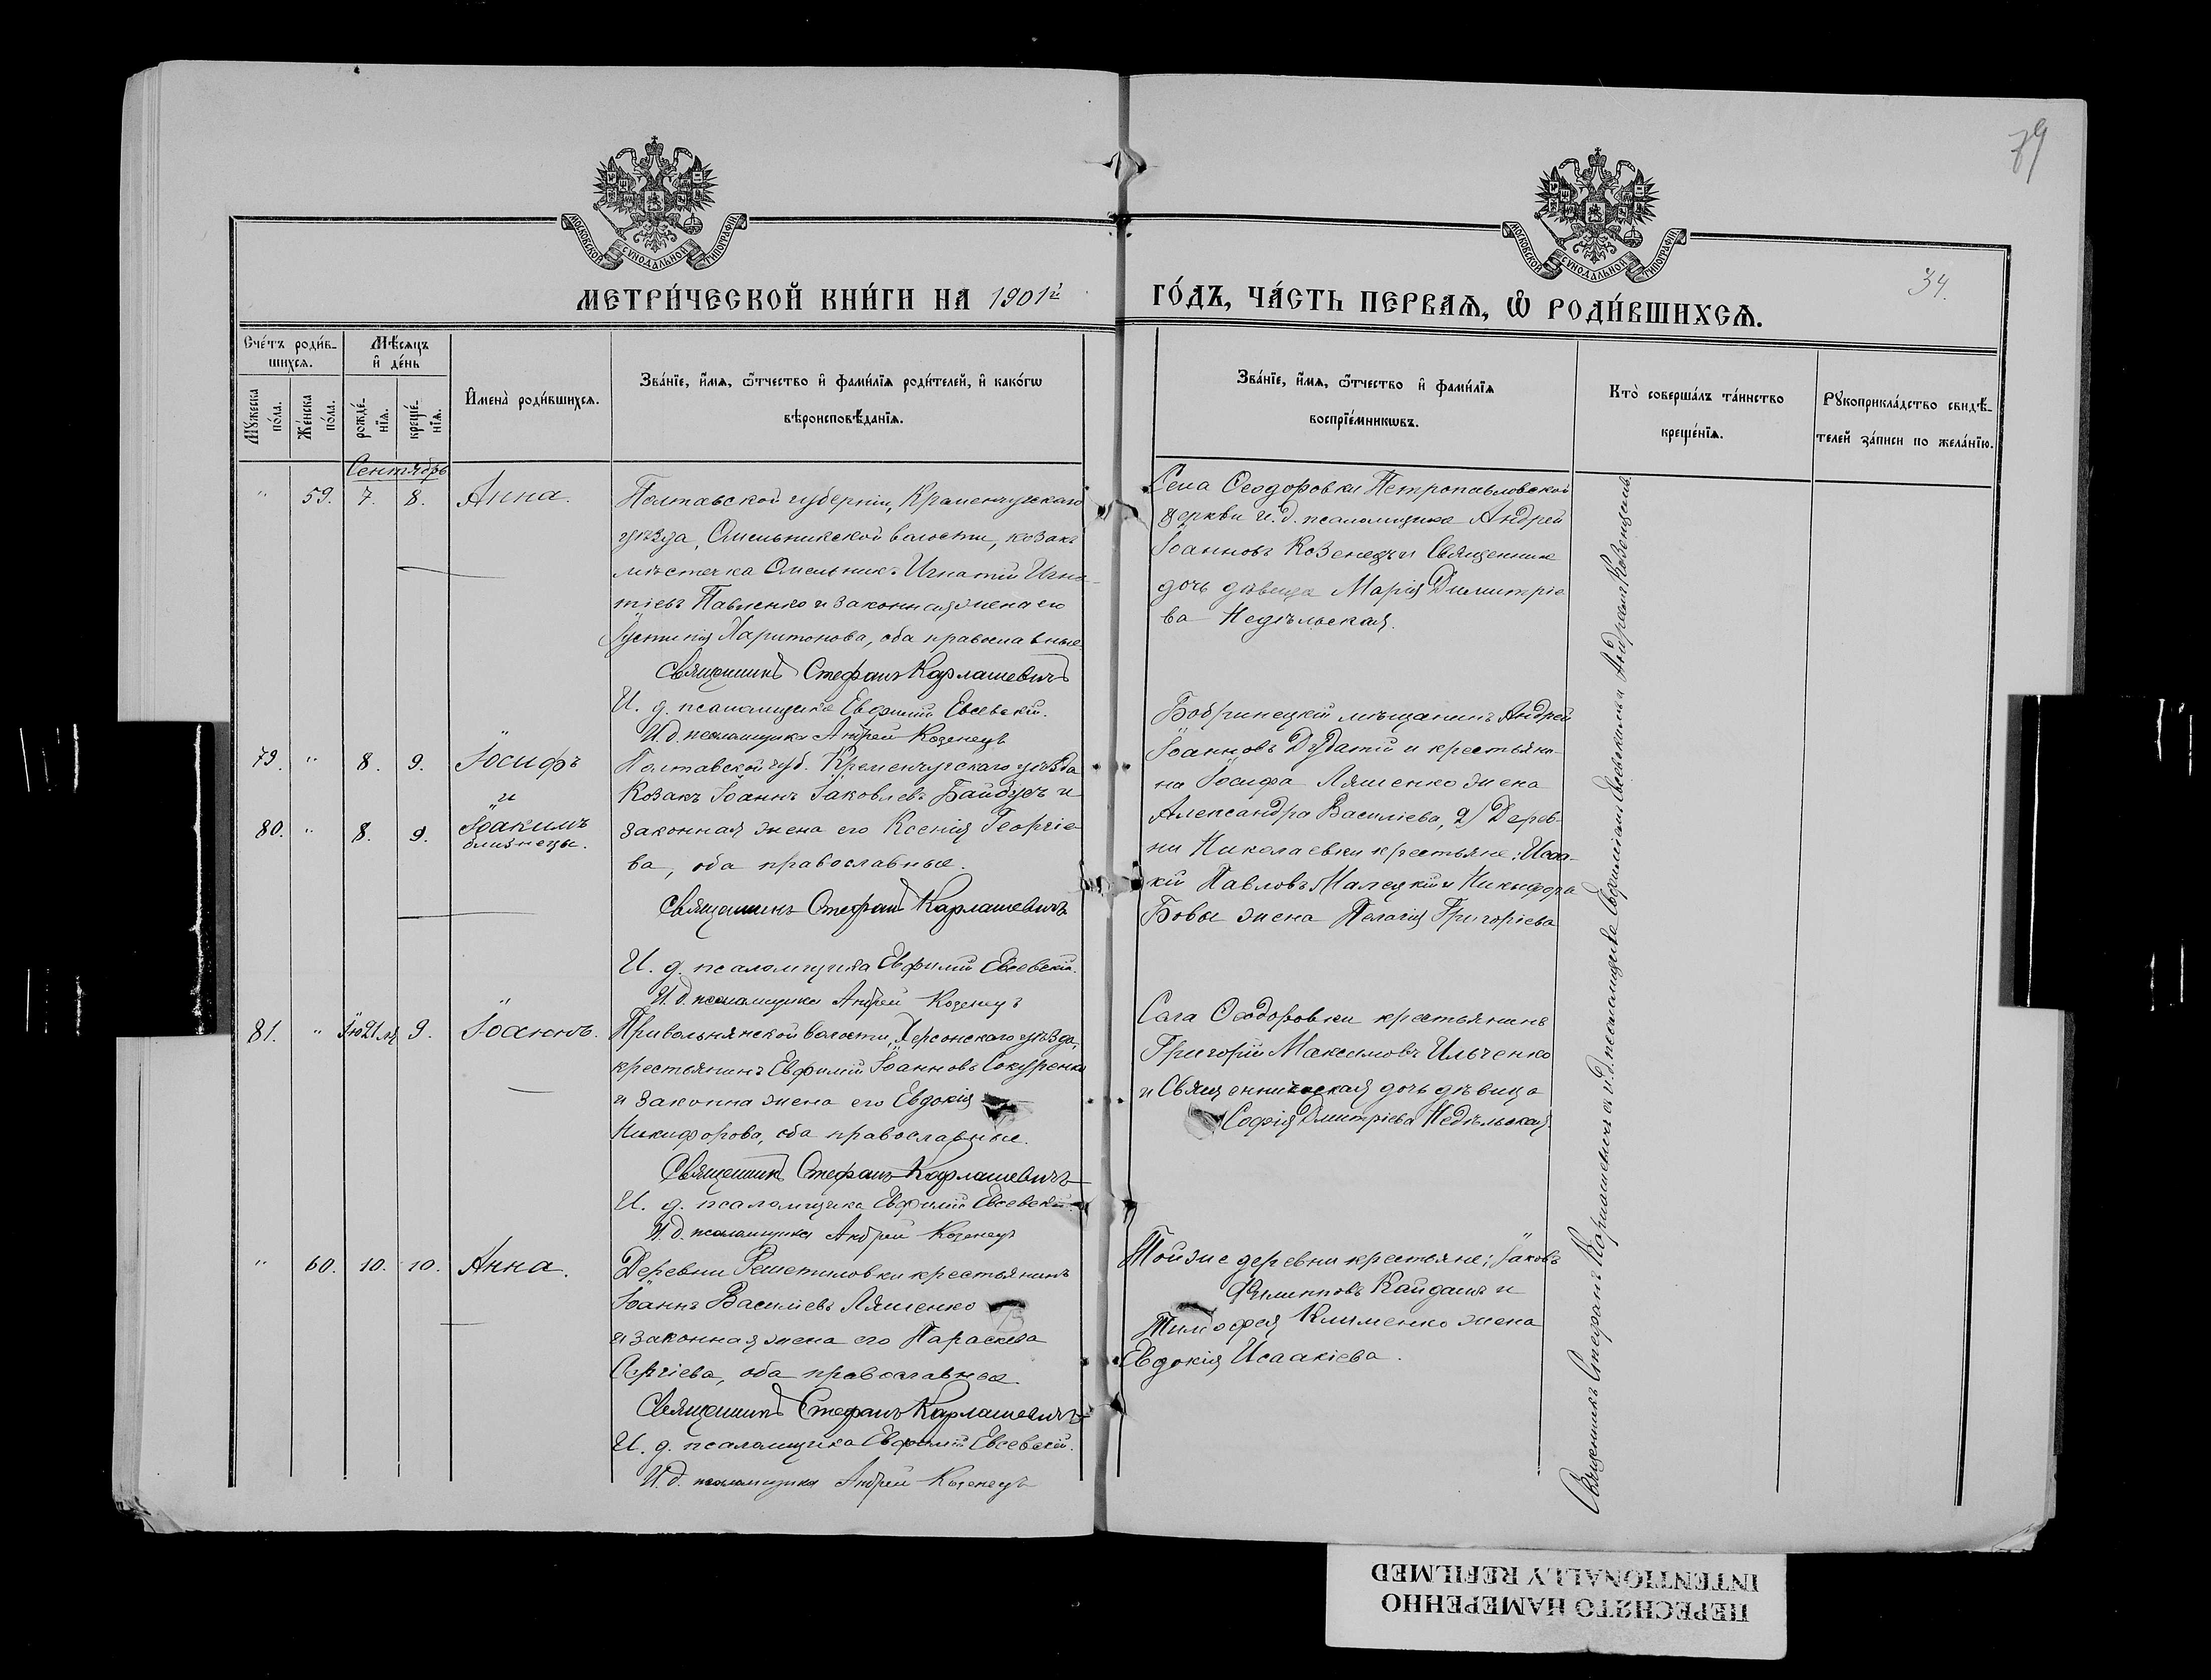 79
34.
МОСКОВСКОЙ СУНОДАЛЬНОЙ ТИПОГРАФІИ
МОСКОВСКОЙ СУНОДАЛЬНОЙ ТИПОГРАФІИ
МЕТРИ́ЧЕСКОЙ КНИ́ГИ НА 1901й ГО́ДЪ, ЧА́СТЬ ПЕРВАѦ, Ѡ҆ РОДИ́ВШИХСѦ.
Сче́тъ роди́в-
шихся.
Мѣсяцъ
и҆ де́нь
Мꙋжеска
по́ла.
Же́нска
по́ла.
рожде́-
нїя.
креще́-
нїя.
И҆мена̀ роди́вшихся.
Зва́нїе, и҆́мя, ѻ҆́тчество и҆ фамилїя роди́телей, и҆ како́гѡ
вѣроисповѣ́данїя.
Зва́нїе, и҆́мя, ѻ҆́тчество и҆ фами́лїя
воспрїе́мникѡвъ.
Кто̀ соверша́лъ та́инство
креще́нїя.
Рꙋкоприкла́дство свидѣ́-
телей за́писи по жела́нїю.
Сентябрь
" 59. 7. 8. Анна.
Полтавской губерніи, Кременчугскаго
уѣзда, Омельникской волости, козакъ
мѣстечка Омельник. Игнатій Игна-
тіевъ Павленко и законная жена его
Іустинія Харитонова, оба православные.
Священникъ Стефанъ Карлашевичъ
И. д. псаломщика Евфимій Евсевскій.
И. д. псаломщика Андрей Козенецъ
Села Ѳеодоровки Петропавловской
церкви и. д. псаломщика Андрей
Іоанновъ Козенецъ и Священника
дочь дѣвица Марія Димитріе
ва Недѣльская.
79. " 8. 9. Іосифъ
и
80. " 8. 9. Іоакимъ
близнецы.
Полтавской губ. Кременчугскаго уѣзда
Козакъ Іоаннъ Іаковлевъ Байбузъ и
законная жена его Ксенія Георгіе-
ва, оба православные.
Священникъ Стефанъ Карлашевичъ
И. д. псаломщика Евфимій Евсевскій.
И. д. псаломщика Андрей Козенецъ
Бобринецкій мѣщанинъ Андрей
Іоанновъ и крестьяни-
на Іосифа Ляшенко жена
Александра Василіева, 2) Дерев-
ни Николаевки крестьяне: Исаа-
кій Павловъ Малецкій и Никифора
Бовы жена Пелагія Григоріева
81. " Ію21ля 9. Іоаннъ.
Привольнянской волости, Херсонскаго уѣзда,
крестьянинъ Евфимій Іоанновъ Сокуренко
и законна жена его Евдокія
Никифорова, оба православные.
Священникъ Стефанъ Карлашевичъ
И. д. псаломщика Евфимій Евсевскій.
И. д. псаломщика Андрей Козенецъ
Села Ѳеодоровки крестьянинъ
Григорій Максимовъ Ильченко
и Священническая дочь дѣвица
Софія Дмитріева Недѣльская.
" 60. 10. 10. Анна.
Деревни Решетиловки крестьянинъ
Іоаннъ Василіевъ Ляшенко
и законная жена его Параскева
Сергіева, оба православные.
Священникъ Стефанъ Карлашевичъ
И. д. псаломщика Евфимій Евсевскій.
И. д. псаломщика Андрей Козенецъ
Той же деревни крестьяне: Іаковъ
Филипповъ Кайдашъ и
Тимофея Клименко жена
Евдокія Исаакіева.
Священникъ Стефанъ Карлашевичъ съ и. д. псаломщика Евфиміемъ Евсевскимъ и Андреемъ Козенцемъ
ПЕРЕСНЯТО НАМЕРЕННО
INTENTIONALLY REFILMED